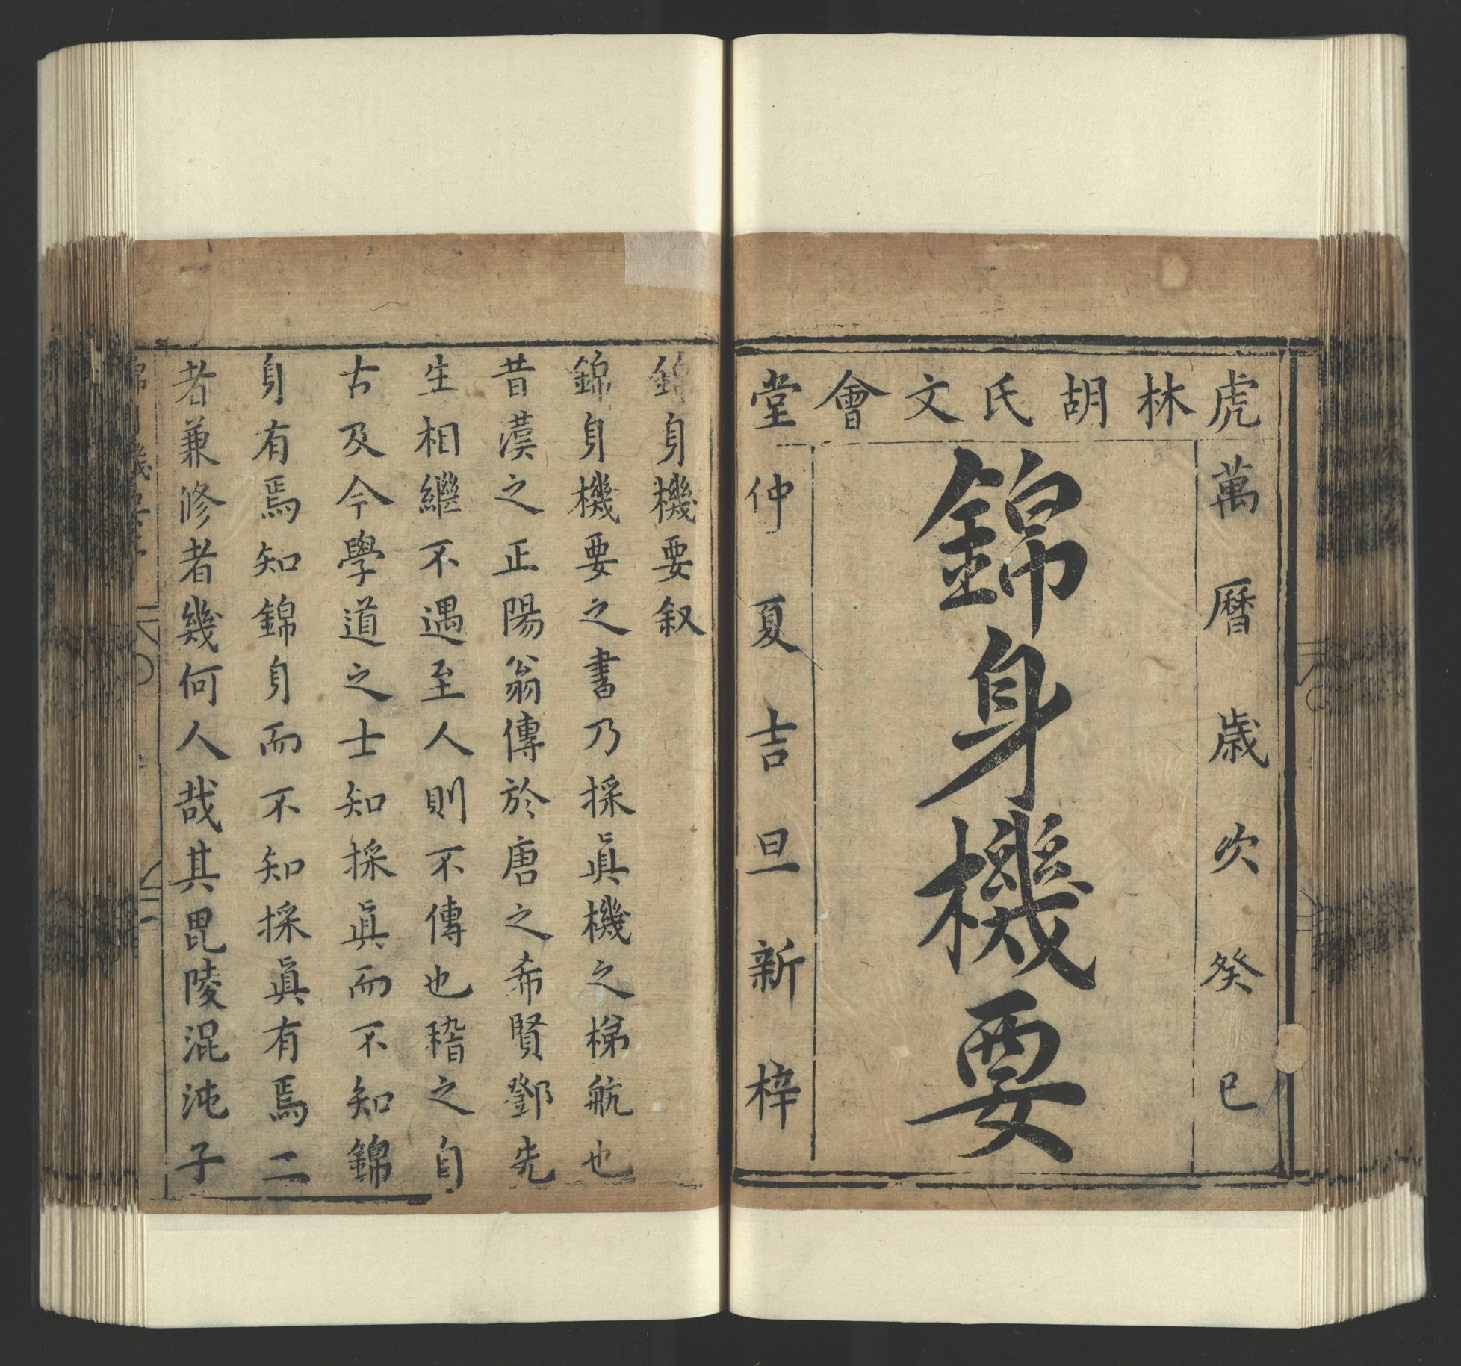 虎林胡氏文會堂
萬曆歲次癸巳
錦身機要
仲夏吉旦新梓
錦身機要叙
錦身機要之書乃採眞機之梯航也
昔漢之正陽翁傳於唐之希賢鄧先
生相繼不遇至人則不傳也稽之自
古及今學道之士知採眞而不知錦
身有焉知錦身而不知採眞有焉二
者兼修者幾何人哉其毘陵混沌子